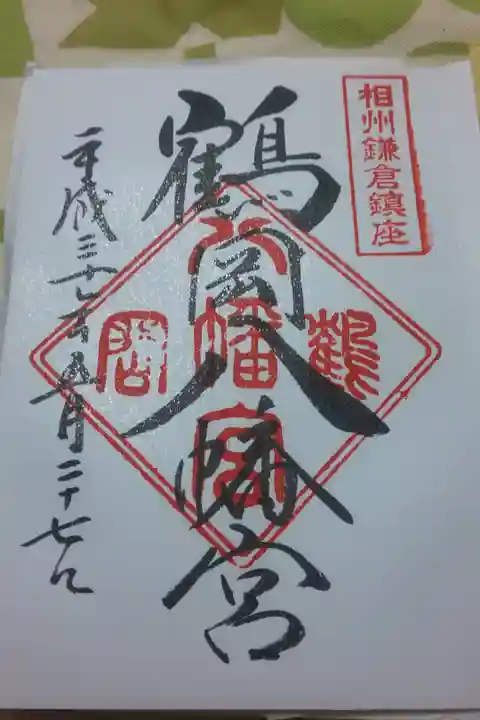 相州鎌倉鎮座
鶴岡八幡宮
鶴岡
八幡宮
平成三十年五月二十七日